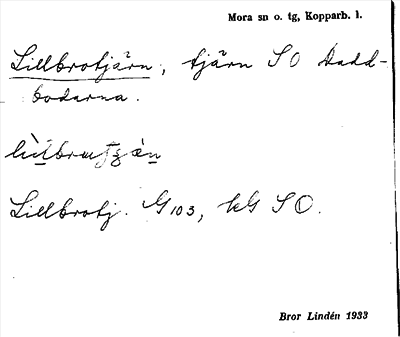 Mora sn o. tg, Kopparb. l.
Lillbrotjärn, tjärn SO Dadd-
bodarna.
Lillbrotj. G103, kG SO.
Bror Lindén 1933